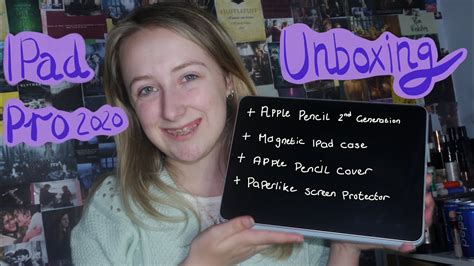 IPad
Pro 2020
Unboxing
+ Apple Pencil 2nd Generation
+ Magnetic IPad case
+ Apple Pencil cover
+ Paperlike Screen Protector